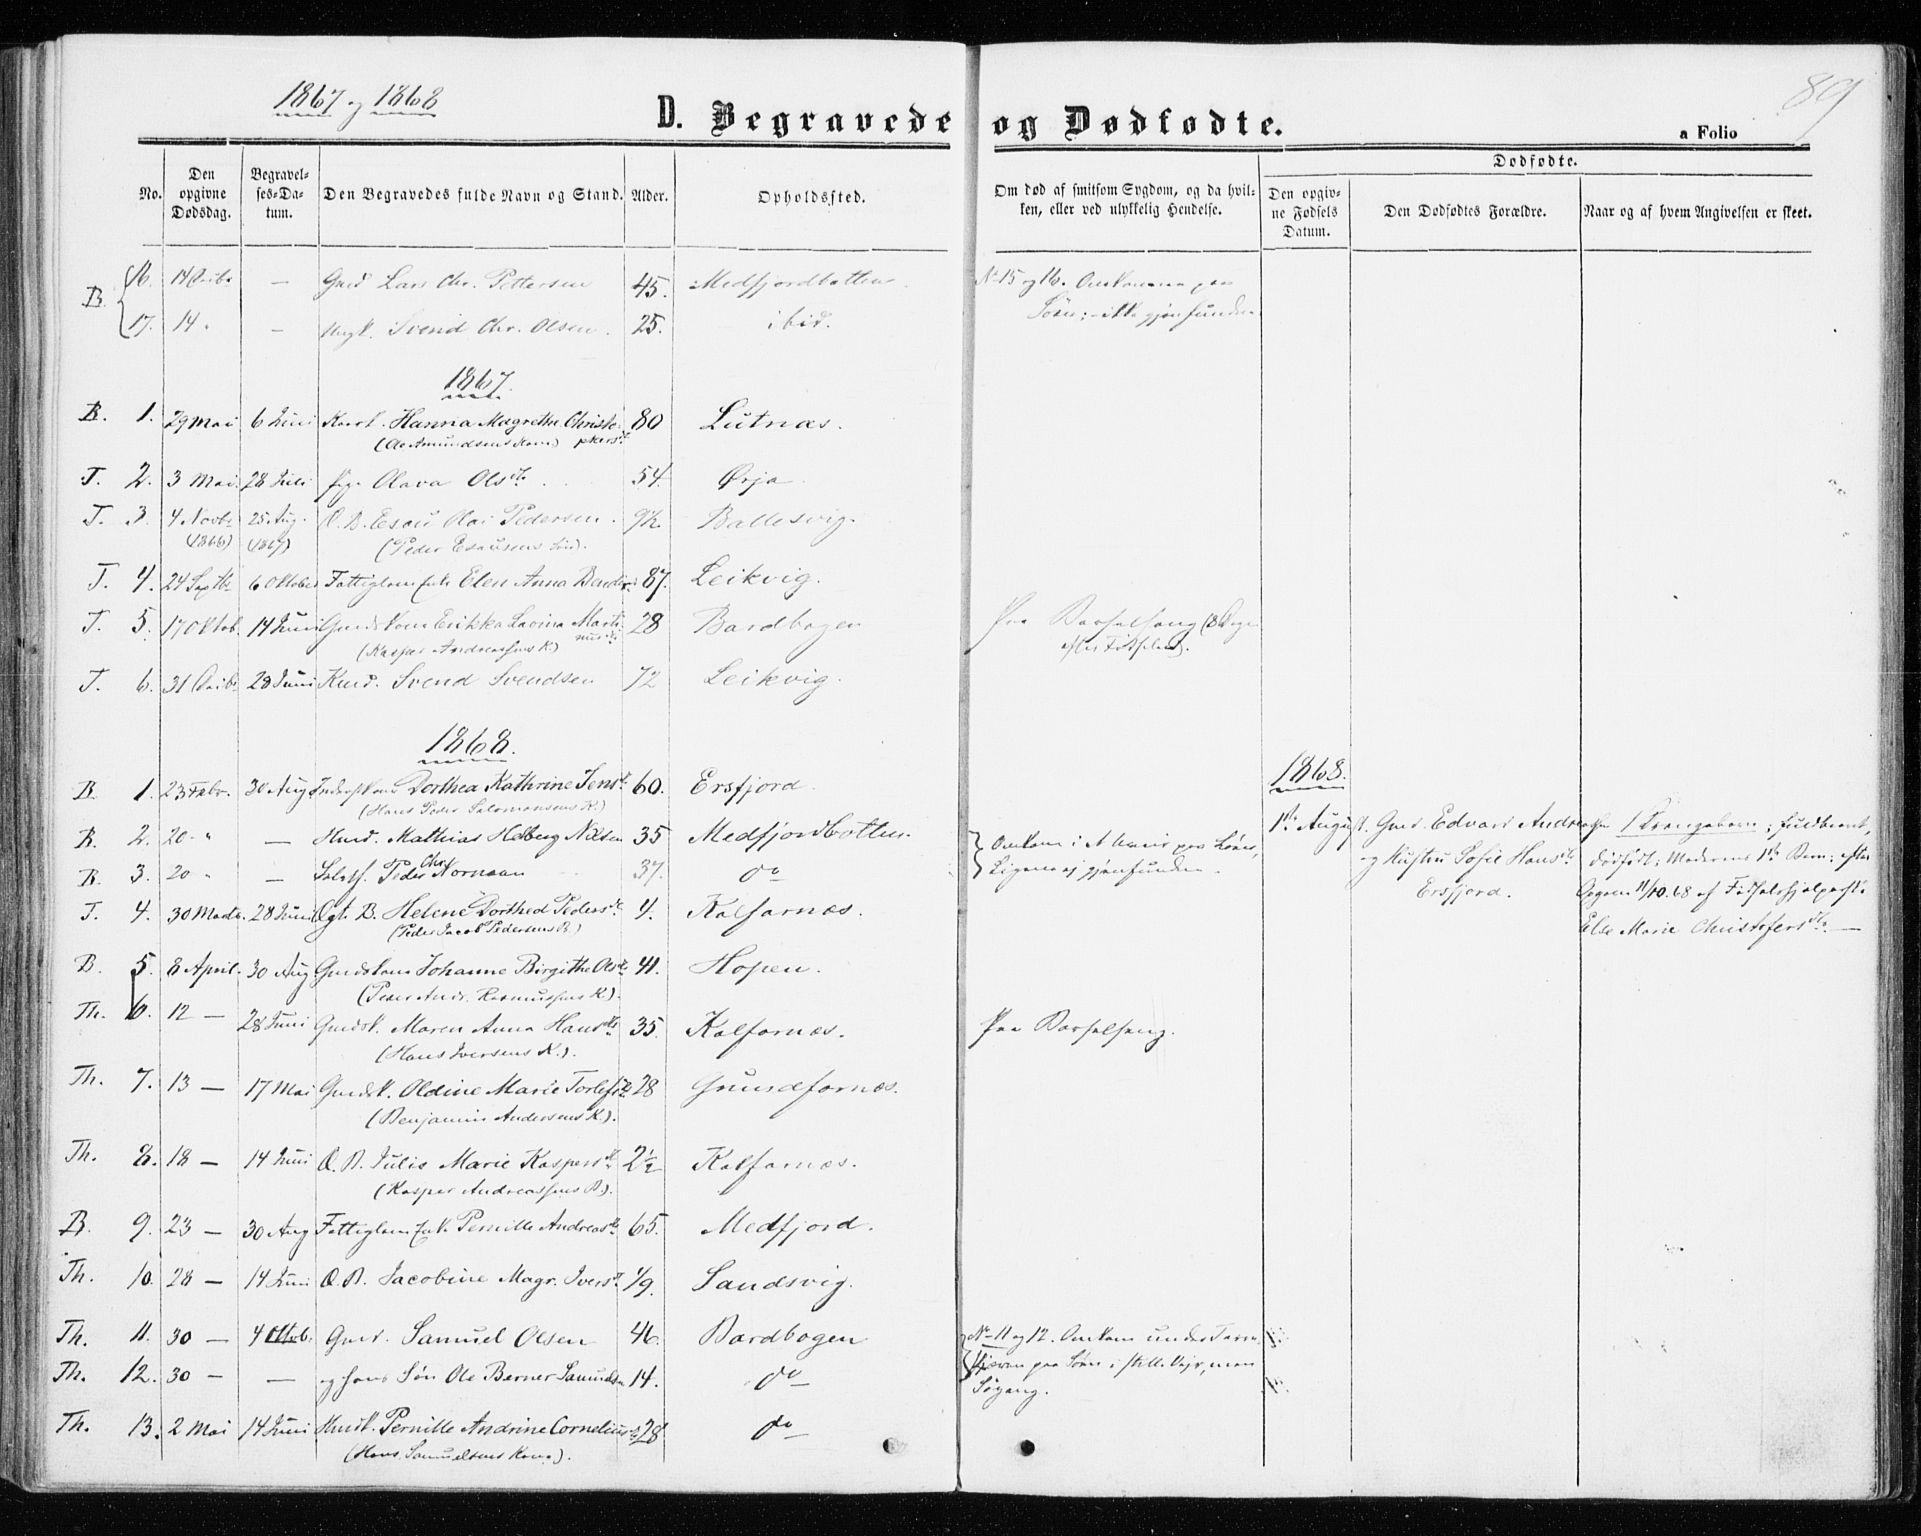 1867 og 1868
D. Begravede og Dødfødte.
89
a Folio
No.
Den opgivne Dødsdag.
Begravelses-Datum.
Den Begravedes fulde Navn og Stand.
Alder.
Opholdssted.
Om død af smitsom Sygdom, og da hvilken, eller ved ulykkelig Hendelse.
Dødfødte.
Den opgivne Fødsels Datum.
Den Dødfødtes Forældre.
Naar og af hvem Angivelsen er skeet.
B. 16. 14 — Lars Chr. Pettersen 45. Medfjordbotten.
No 15 og 16. Omkomne paa
Søen; ikke gjenfundne
17. 14 " — Ungk. Svend Chr. Olsen. 25. ibid.
1867.
B. 1. 29 Mai 6 Juni Hanna Magrethe Christo- 80 Lutnæs.
(Ole Amundsens Kone) phersd.
T. 2. 3 Mai 28 Juli Pige Olava Olsdtr 54. Ørja.
T. 3. 4 Novbr 25 Aug. Æ. B. Esau Olai Pedersen. 9½. Ballesvig.
(1866) (1867) (Peder Esausens Søn).
T. 4. 24 Septbr 6 Oktober Fattiglem Enke Elen Anna 87. Leikvig.
T. 5. 17 Oktob. 14 Juni Gmds Kone Erikka Lavina Marti- 28 Bardbogen
nusd.
Paa Barselseng (8 Dage
efter Fødselen).
(Kasper Andreassens K.)
T. 6. 31 28 Juni Svend Svendsen 72 Leikvig.
1868.
B. 1. 23 Febr. 30 Aug Dorthea Kathrine Jensd. 60. Ersfjord.
(Hans Peder Salomonsens K.)
1868.
B. 2. 20 " — Mathias Hedberg Nilsen 35 Medfjordbotten.
B. 3. 20 " — Peder Chr. Normann 37. do
Omkom i paa Søen,
Ligene ej gjenfundne.
1ste August. Gmd. Edvard Andreassen
og Hustru Sofie Hansdtr
Ersfjord.
fuldbaaret,
dødfødt; Moderens 1ste Barn; efter
Opgave 11/10.68 af Fødselshjelperske
Else Marie Christofersdtr. —
T. 4. 30 Marts 28 Juni Ægt. B. Helene Dorthea Pedersd. 4. Kalfarnæs.
(Peder Jacob Pedersens B.)
B. 5. 8 April. 30 Aug Gmds Kone Johanne Birgithe Olsd. 41. Hopen.
(Peder Andr. Rasmussens K.).
Th. 6. 12 — 28 Juni Gmdsk. Maren Anna Hansdtr 35. Kalfarnæs. Paa Barselseng.
(Hans Iversens K.).
Th. 7. 13 — 17 Mai Gmdsk. Oldine Marie 28 Grundfarnæs.
(Benjamin Andersens K.).
Th. 8. 18 — 14 Juni Æ. B. Julie Marie Kaspersd. 2½ Kalfarnæs.
(Kasper Andreassens B.).
B. 9. 23 — 30 Aug Fattiglem Enke Pernille Andreasd. 65. Medfjord.
Th. 10. 28 — 14 Juni Æ. B. Jacobine Magr. Iversd. 1/9. Sandsvig.
Th. 11. 30 — 4 Oktob. Gmd. Samuel Olsen 46. Bardbogen
No 11 og 12. Omkom under
Th. 12. 30 — — og hans Søn Ole Berner Samuelsen 14. do —
paa Søen i stille Vejr, men
Søgang.
Th. 13. 2 Mai 14 Juni Pernille Andrine Corneliusd. 28 do —
(Hans Samuelsens Kone).